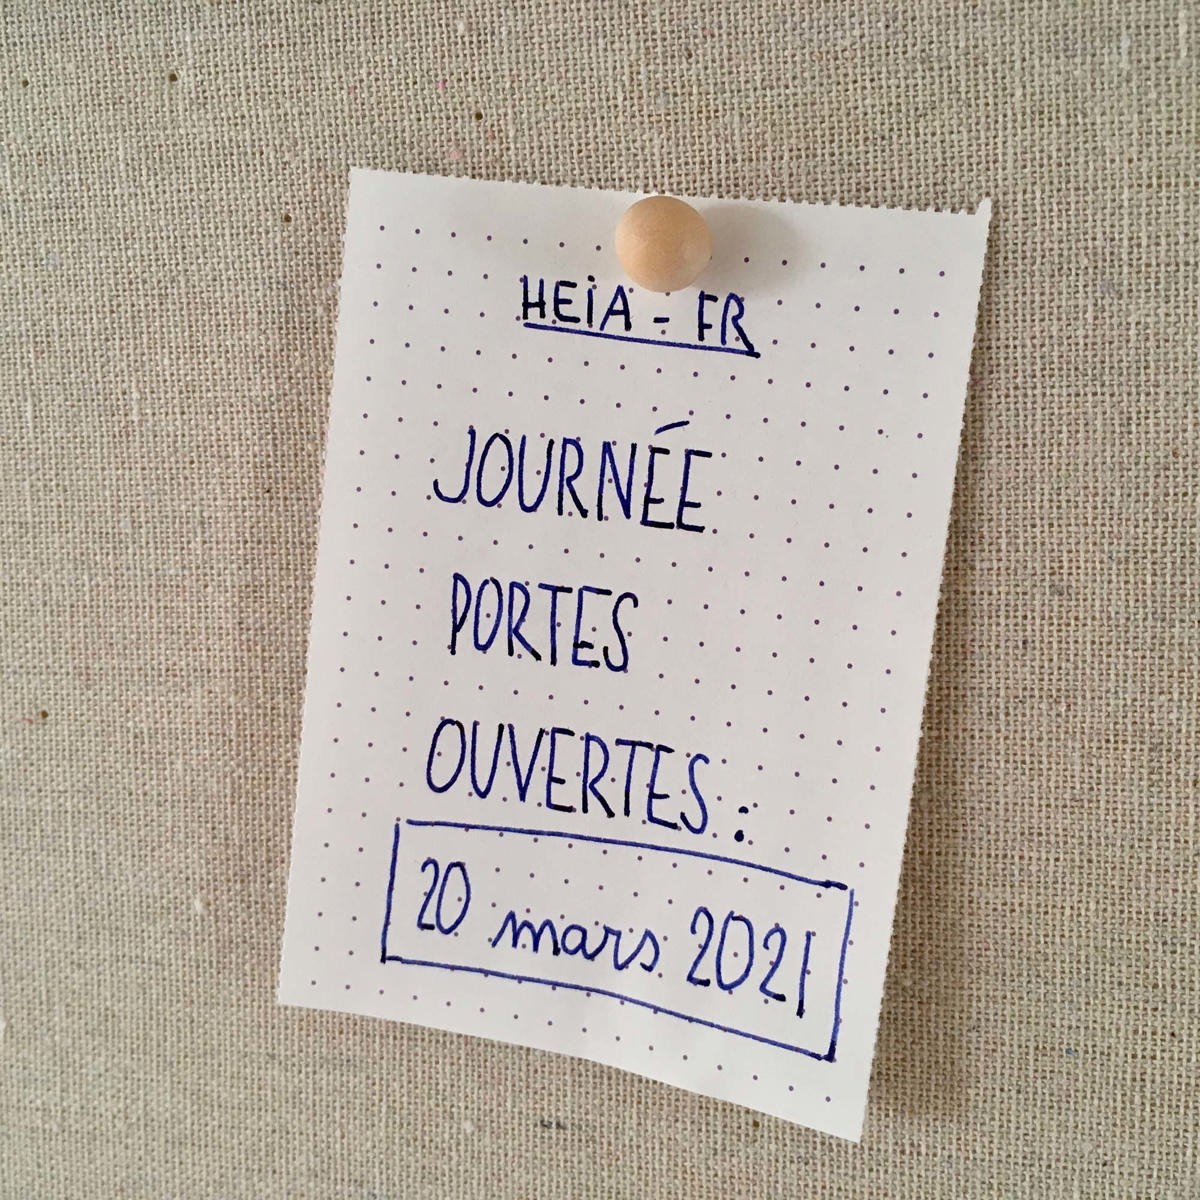 HEiA - FR
JOURNÉE
PORTES
OUVERTES :
20 mars 2021